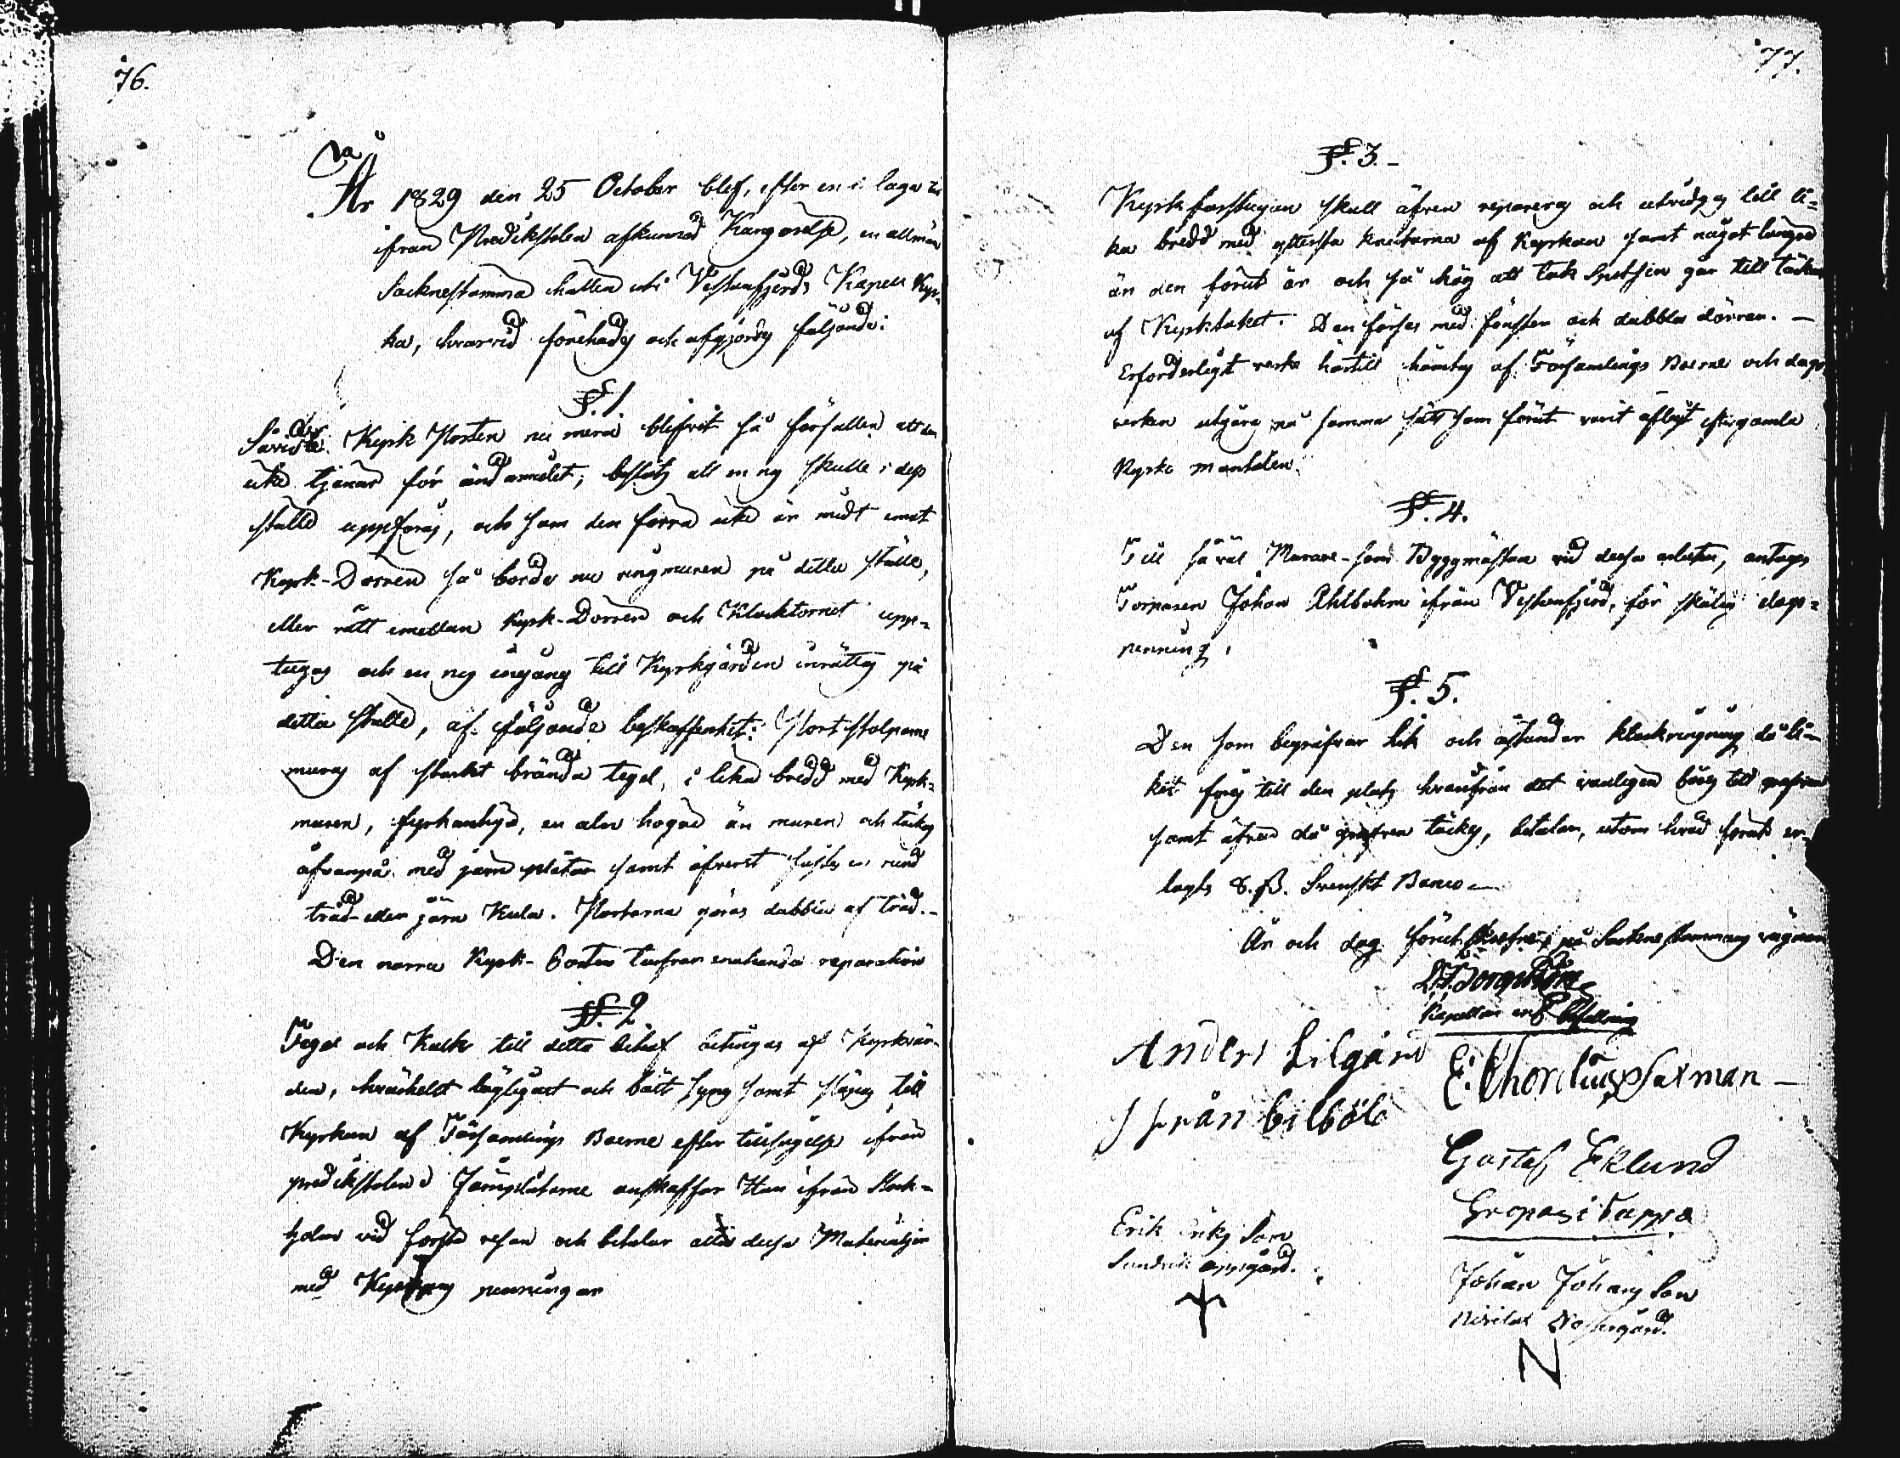 76.
År 1829 den 25 October blef, efter en i laga tid
ifrån Predikstolen afkunnad Kungörelse, en allmän
Socknestämma hållen uti Vestanfjerds Kapell Kyr-
ka, hvarvid förehades och afgjordes följande:
§. 1.
Södra Kyrk Porten nu mera blifvit så förfallen att den
icke tjenar för ändamålet, beslöts att en ny skulle i dess
ställe uppföras, och som den förra icke är midt emot
Kyrk-Dörren så borde nu ringmuren på detta ställe,
eller rätt emellan Kyrk-Dörren och Klocktornet upp-
tagas och en ny ingång till Kyrkgården inrättas på
detta ställe, af följande beskaffenhet: Portstolparne
muras af starkt brända tegel, i lika bredd med Kyrk-
muren, fyrkantiga, en aln högre än muren och täckas
ofvanpå med järn plåtar samt öfverst sättes en rund
träd eller järn Kula. Portarna göras dubbla af träd.-
Den norra Kyrk-Porten tarfvar enahanda reparation
§. 2
Tegel och Kalk till detta behof betingas af Kyrkvär-
den, hvarhelst lägligast och bäst synes samt släpas till
Kyrkan af Församlings Boerne efter tillsägelse ifrån
predikstolen. Järnplåtarne anskaffar Han ifrån Stock-
holm vid första resan och betalar alla dessa Materialier
med Kyrkans penningar
77.
§. 3.-
Kyrkförstugan skall äfven repareras och utvidgas till li-
ka bredd med yttersta knutarna af Kyrkan samt något längre
än den förut är och så hög att tak Spetsen går till täckan
af Kyrktaket. Den förses med fönster och dubbla dörrar. -
Erforderligt virke härtill hämtas af Församlings Boerne och dags
verken utgöras på samma sätt som förut varit öfligt efter gamla
Kyrko mantalen.
§. 4.
Till såväl Murare- som Byggmästare vid dessa arbeten, antages
Torparen Johan Ahlbohm ifrån Vestanfjerd, för skälig dags-
penning.
§. 5.
Den som begrafver Lik och åstundar klockringning då li-
ket föres till den plats hvarifrån det vanligen bäres till grafven
samt äfven då grafven täckes, betalar, utom hvad förut er-
lagts 8. ß. Svenskt Banco -
År och dag förut skrefne, på Sockne stämmans vägnar
Borgström
Kapellan
Anders Lilgård
Ifrån bilböle
Sexman -
Gustaf Eklund
Gropas i Tappo
Erik Eriks Son
Sundvik oppgård.
Johan Johans Son
Nivelax Västergård.
N